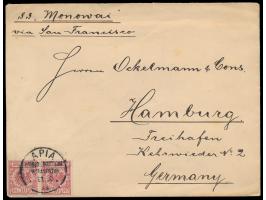 s.s. Monowai
via San Francisco
Herren Ockelmann & Cons.
Hamburg
Freihafen
Kehrwieder № 2
Germany
APIA